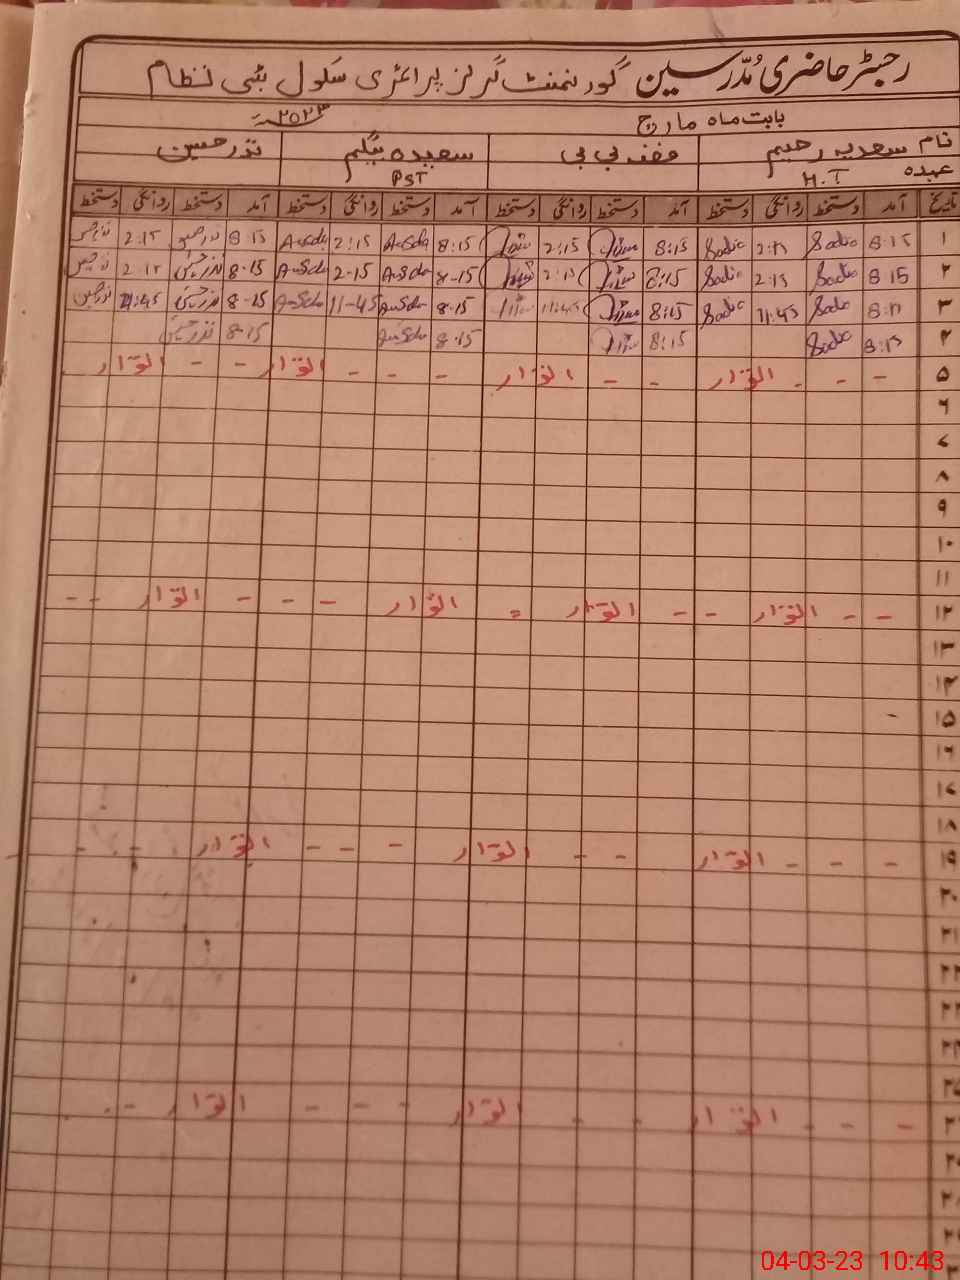 رجسٹر حاضری مُدّرسین گورنمنٹ گرلز پرائمری سکول بٹی نظام
بابت ماہ مارچ ۲۰۲۳
نام سعدیہ رحیم بی بی سعیدہ بیگم نذر حسین
عہدہ H.T PST
تاریخ آمد دستخط روانگی دستخط آمد دستخط روانگی دستخط آمد دستخط روانگی دستخط آمد دستخط روانگی دستخط
۱ 8:15 Sadia 2:15 Sadia 8:15 2:15 8:15 2:15 8:15 نذر حسین 2:15 نذر حسین
۲ 8:15 Sadia 2:15 Sadia 8:15 2:15 8-15 2-15 8-15 نذر حسین 2:15 نذر حسین
۳ Sadia 11:45 Sadia 8:15 11:45 8:15 11-45 8-15 نذر حسین 11:45 نذر حسین
۴ 8:15 Sadia 8:15 8:15 8-15 نذر حسین
۵ - - - اتوار - - اتوار - - - اتوار - - اتوار
۶
۷
۸
۹
۱۰
۱۱
۱۲ - - اتوار - - اتوار = اتوار - - - اتوار - -
۱۳
۱۴
۱۵ -
۱۶
۱۷
۱۸
۱۹ - - - اتوار - - اتوار - - - اتوار - -
۲۰
۲۱
۲۲
۲۳
۲۴
۲۵
- - - اتوار - - اتوار - - - اتوار - -
04-03-23 10:43